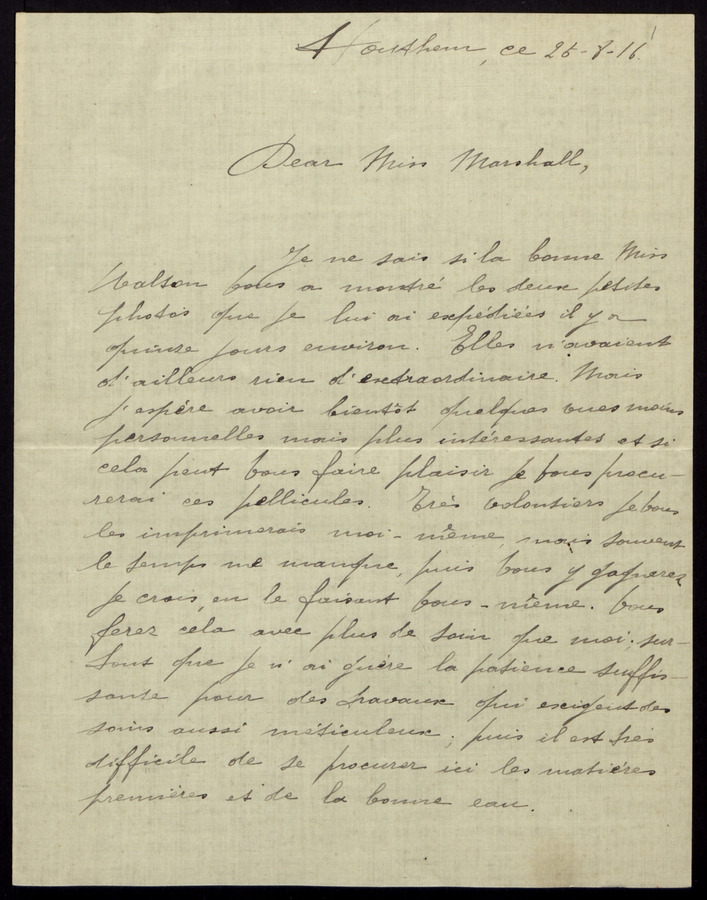 Houthem, ce 25-8-16!
Dear Miss Marshall,
Je ne sais si la bonne Miss
Watson vous a montré les deux petites
photos que je lui ai expédiées il y a
quinze jours environ. Elles n'avaient
d'ailleurs rien d'extraordinaire. Mais
j'espère avoir bientôt quelques vues moins
personnelles mais plus intéressantes et si
cela peut vous faire plaisir je vous procu-
rerai ces pellicules. Très volontiers je vous
les imprimerais moi-même, mais souvent
le temps me manque, puis vous y gagnerez
je crois, en le faisant vous-même. Vous
ferez cela avec plus de soin que moi; sur-
tout que je n'ai guère la patience suffis-
sante pour des travaux qui exigent des
soins aussi méticuleux; puis il est très
difficile de se procurer ici les matières
premières et de la bonne eau.